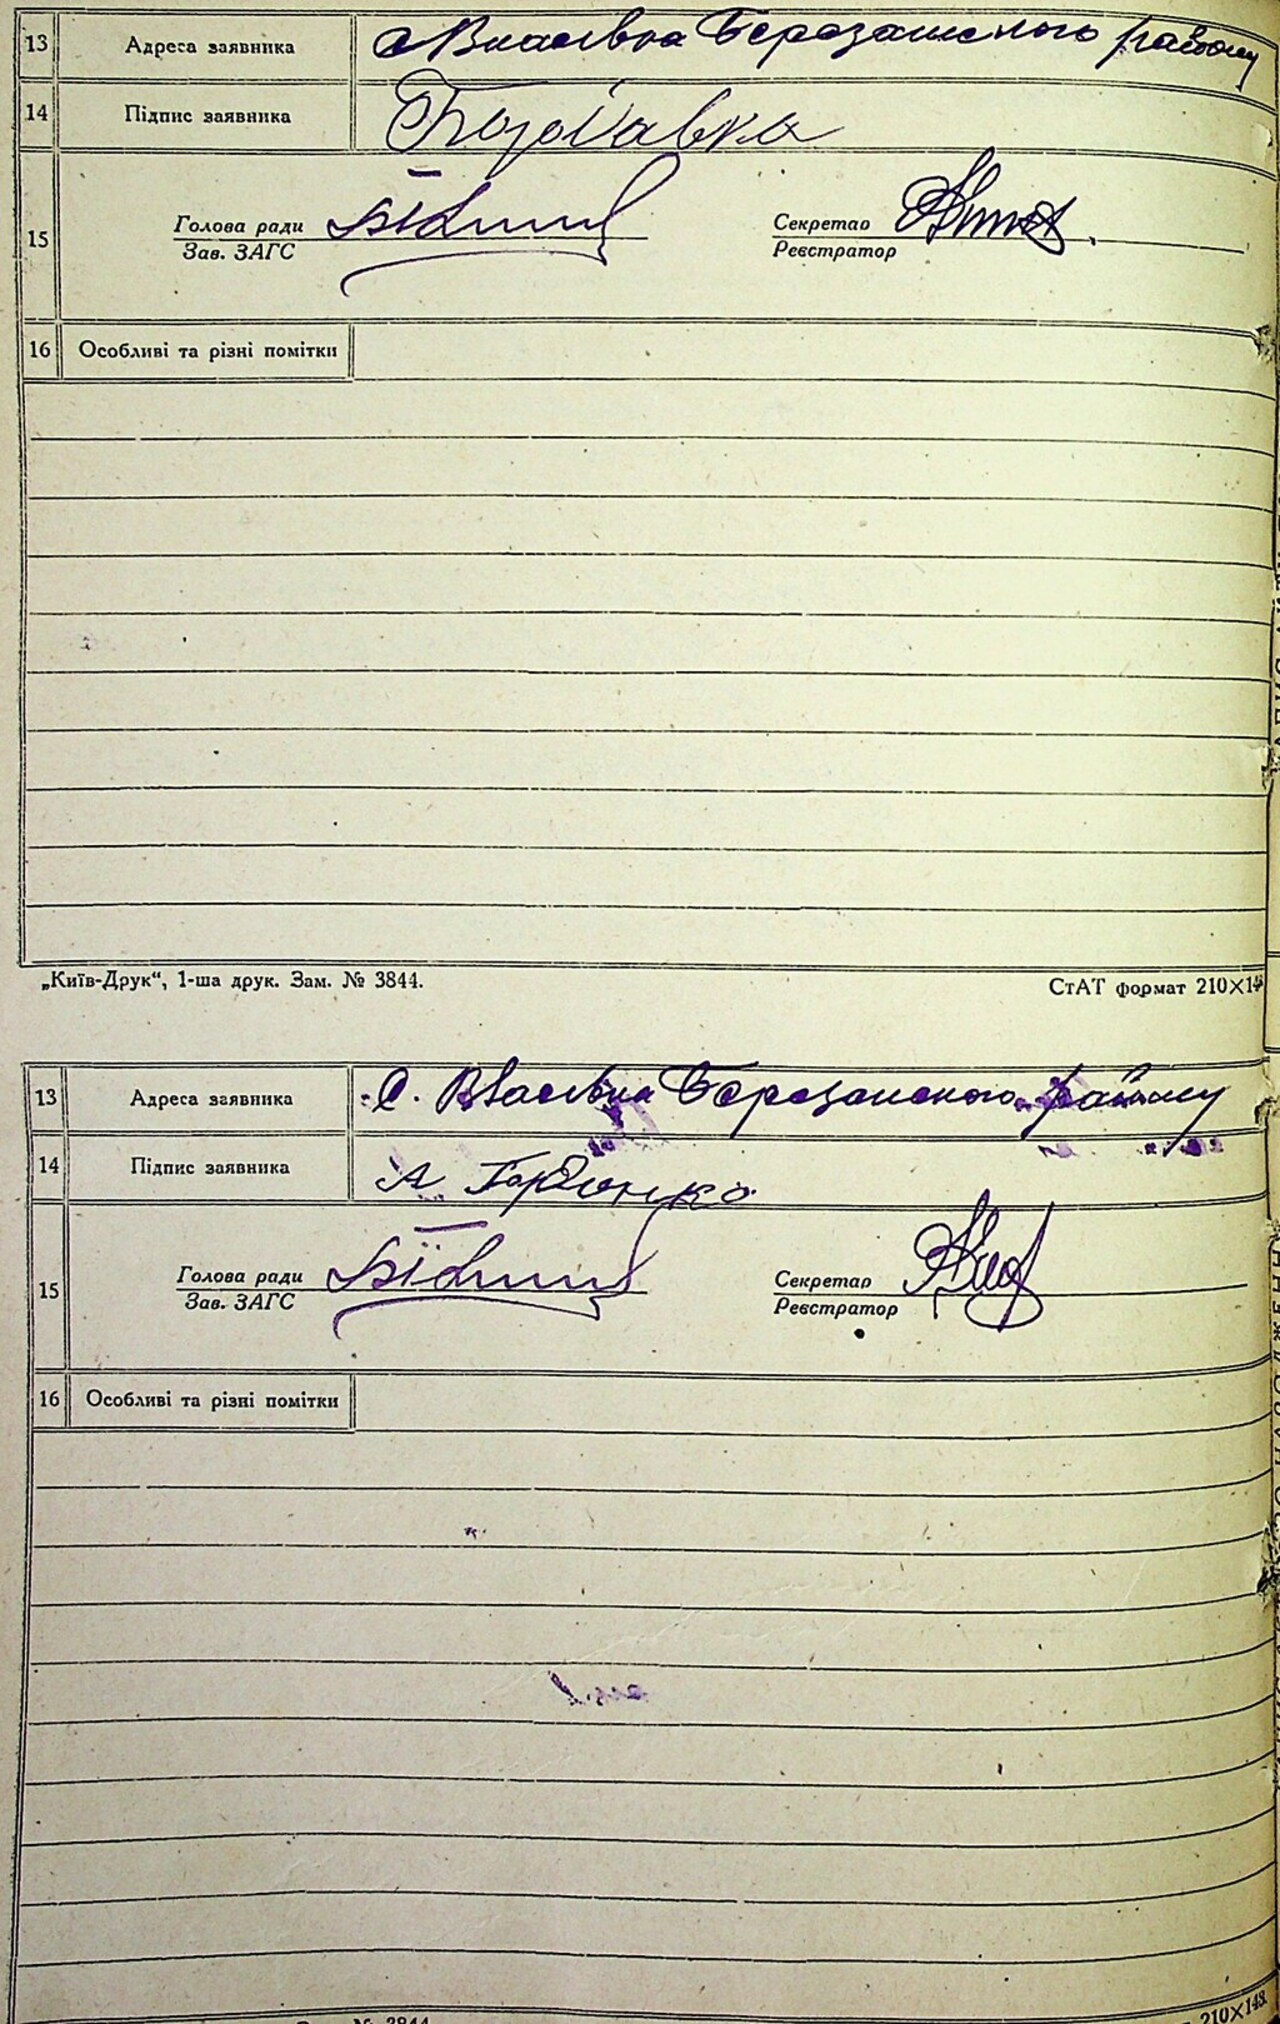 13 Адреса заявника с Власівка Березанського району
14 Підпис заявника
15 Голова ради Секретар
Зав. ЗАГС Реєстратор
16 Особливі та різні помітки
„Київ-Друк“, 1-ша друк. Зам. № 3844. СтАТ формат 210×14
13 Адреса заявника С. Власівка Березанського району
14 Підпис заявника А
15 Голова ради Секретар
Зав. ЗАГС Реєстратор
16 Особливі та різні помітки
№ 3844 210×148